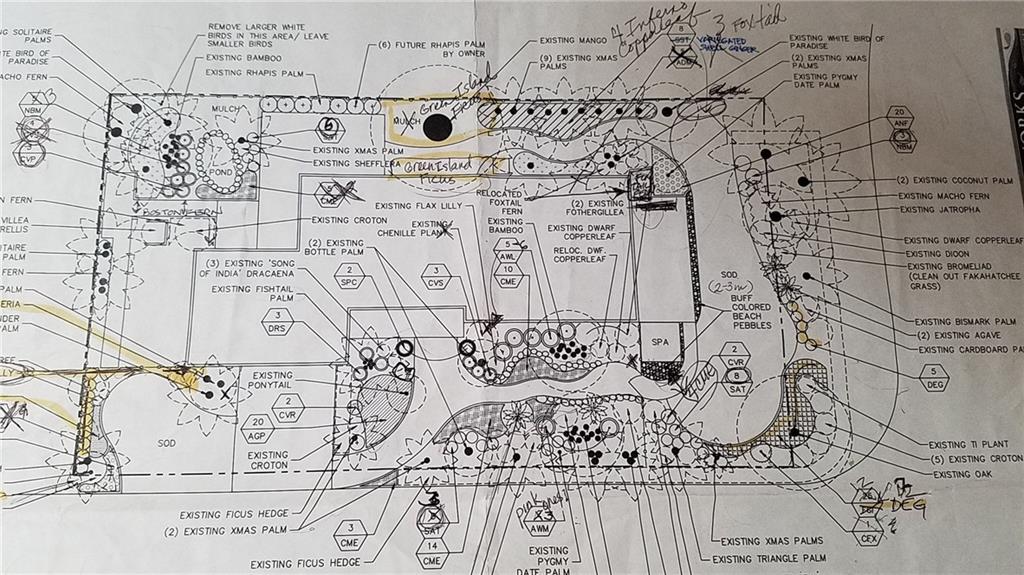 NG SOLITAIRE
PALMS
TE BIRD OF
PARADISE
MACHO FERN
REMOVE LARGER WHITE
BIRDS IN THIS AREA/ LEAVE
SMALLER BIRDS
EXISTING BAMBOO
EXISTING RHAPIS PALM
(6) FUTURE RHAPIS PALM
BY OWNER
EXISTING MANGO
(9) EXISTING XMAS
PALMS
4 Inferno
Copperleaf
3 Foxtail
8
SST
VARIEGATED
SHELL GINGER
ADM
EXISTING WHITE BIRD OF
PARADISE
(2) EXISTING XMAS
PALMS
EXISTING PYGMY
DATE PALM
NBM
CVP
MULCH
MULCH
Green Island
Ficus
20
ANF
3
NBM
EXISTING XMAS PALM
EXISTING SHEFFLERA
POND
Green Island
Ficus
CME
BOSTON FERN
RELOCATED
FOXTAIL
FERN
EXISTING FLAX LILLY
(2) EXISTING
FOTHERGILLEA
(2) EXISTING COCONUT PALM
EXISTING MACHO FERN
EXISTING JATROPHA
N FERN
VILLEA
RELLIS
EXISTING CROTON
EXISTING
CHENILLE PLANT
EXISTING
BAMBOO
EXISTING DWARF
COPPERLEAF
RELOC. DWF.
COPPERLEAF
EXISTING DWARF COPPERLEAF
EXISTING DIOON
EXISTING BROMELIAD
(CLEAN OUT FAKAHATCHEE
GRASS)
LITAIRE
PALM
FERN
PALM
ERIA
NDER
PALM
(2) EXISTING
BOTTLE PALM
(3) EXISTING 'SONG
OF INDIA' DRACAENA
EXISTING FISHTAIL
PALM
2
SPC
3
CVS
AWL
10
CME
SOD
(2-3")
BUFF
COLORED
BEACH
PEBBLES
EXISTING BISMARK PALM
(2) EXISTING AGAVE
EXISTING CARDBOARD PA
3
DRS
SPA
2
CVR
8
SAT
5
DEG
REE
LLY
EXISTING
PONYTAIL
2
CVR
20
AGP
SOD
EXISTING
CROTON
EXISTING TI PLANT
(5) EXISTING CROTON
EXISTING OAK
EXISTING FICUS HEDGE
(2) EXISTING XMAS PALM
EXISTING FICUS HEDGE
3
CME
3
SAT
14
CME
AWM
EXISTING
PYGMY
DATE PALM
EXISTING XMAS PALMS
EXISTING TRIANGLE PALM
DEG
1
CEX